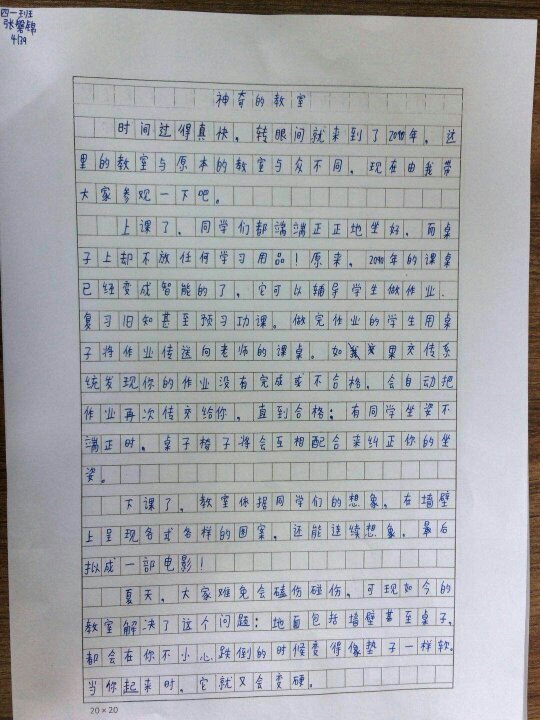 四一班
张馨锦
4/29
神奇的教室
时间过得真快，转眼间就来到了2090年，这
里的教室与原本的教室与众不同，现在由我带
大家参观一下吧。
上课了，同学们都端端正正地坐好，而桌
子上却不放任何学习用品！原来，2090年的课桌
已经变成智能的了，它可以辅导学生做作业、
复习旧知甚至预习功课。做完作业的学生用桌
子将作业传送向老师的课桌。如果交传系
统发现你的作业没有完成或不合格，会自动把
作业再次传交给你，直到合格；有同学坐姿不
端正时，桌子椅子将会互相配合来纠正你的坐
姿。
下课了，教室依据同学们的想象，在墙壁
上呈现各式各样的图案，还能连续想象，最后
拟成一部电影！
夏天，大家难免会磕伤碰伤，可现如今的
教室解决了这个问题：地面包括墙壁甚至桌子，
都会在你不小心跌倒的时候变得像垫子一样软。
当你起来时，它就又会变硬。
20×20